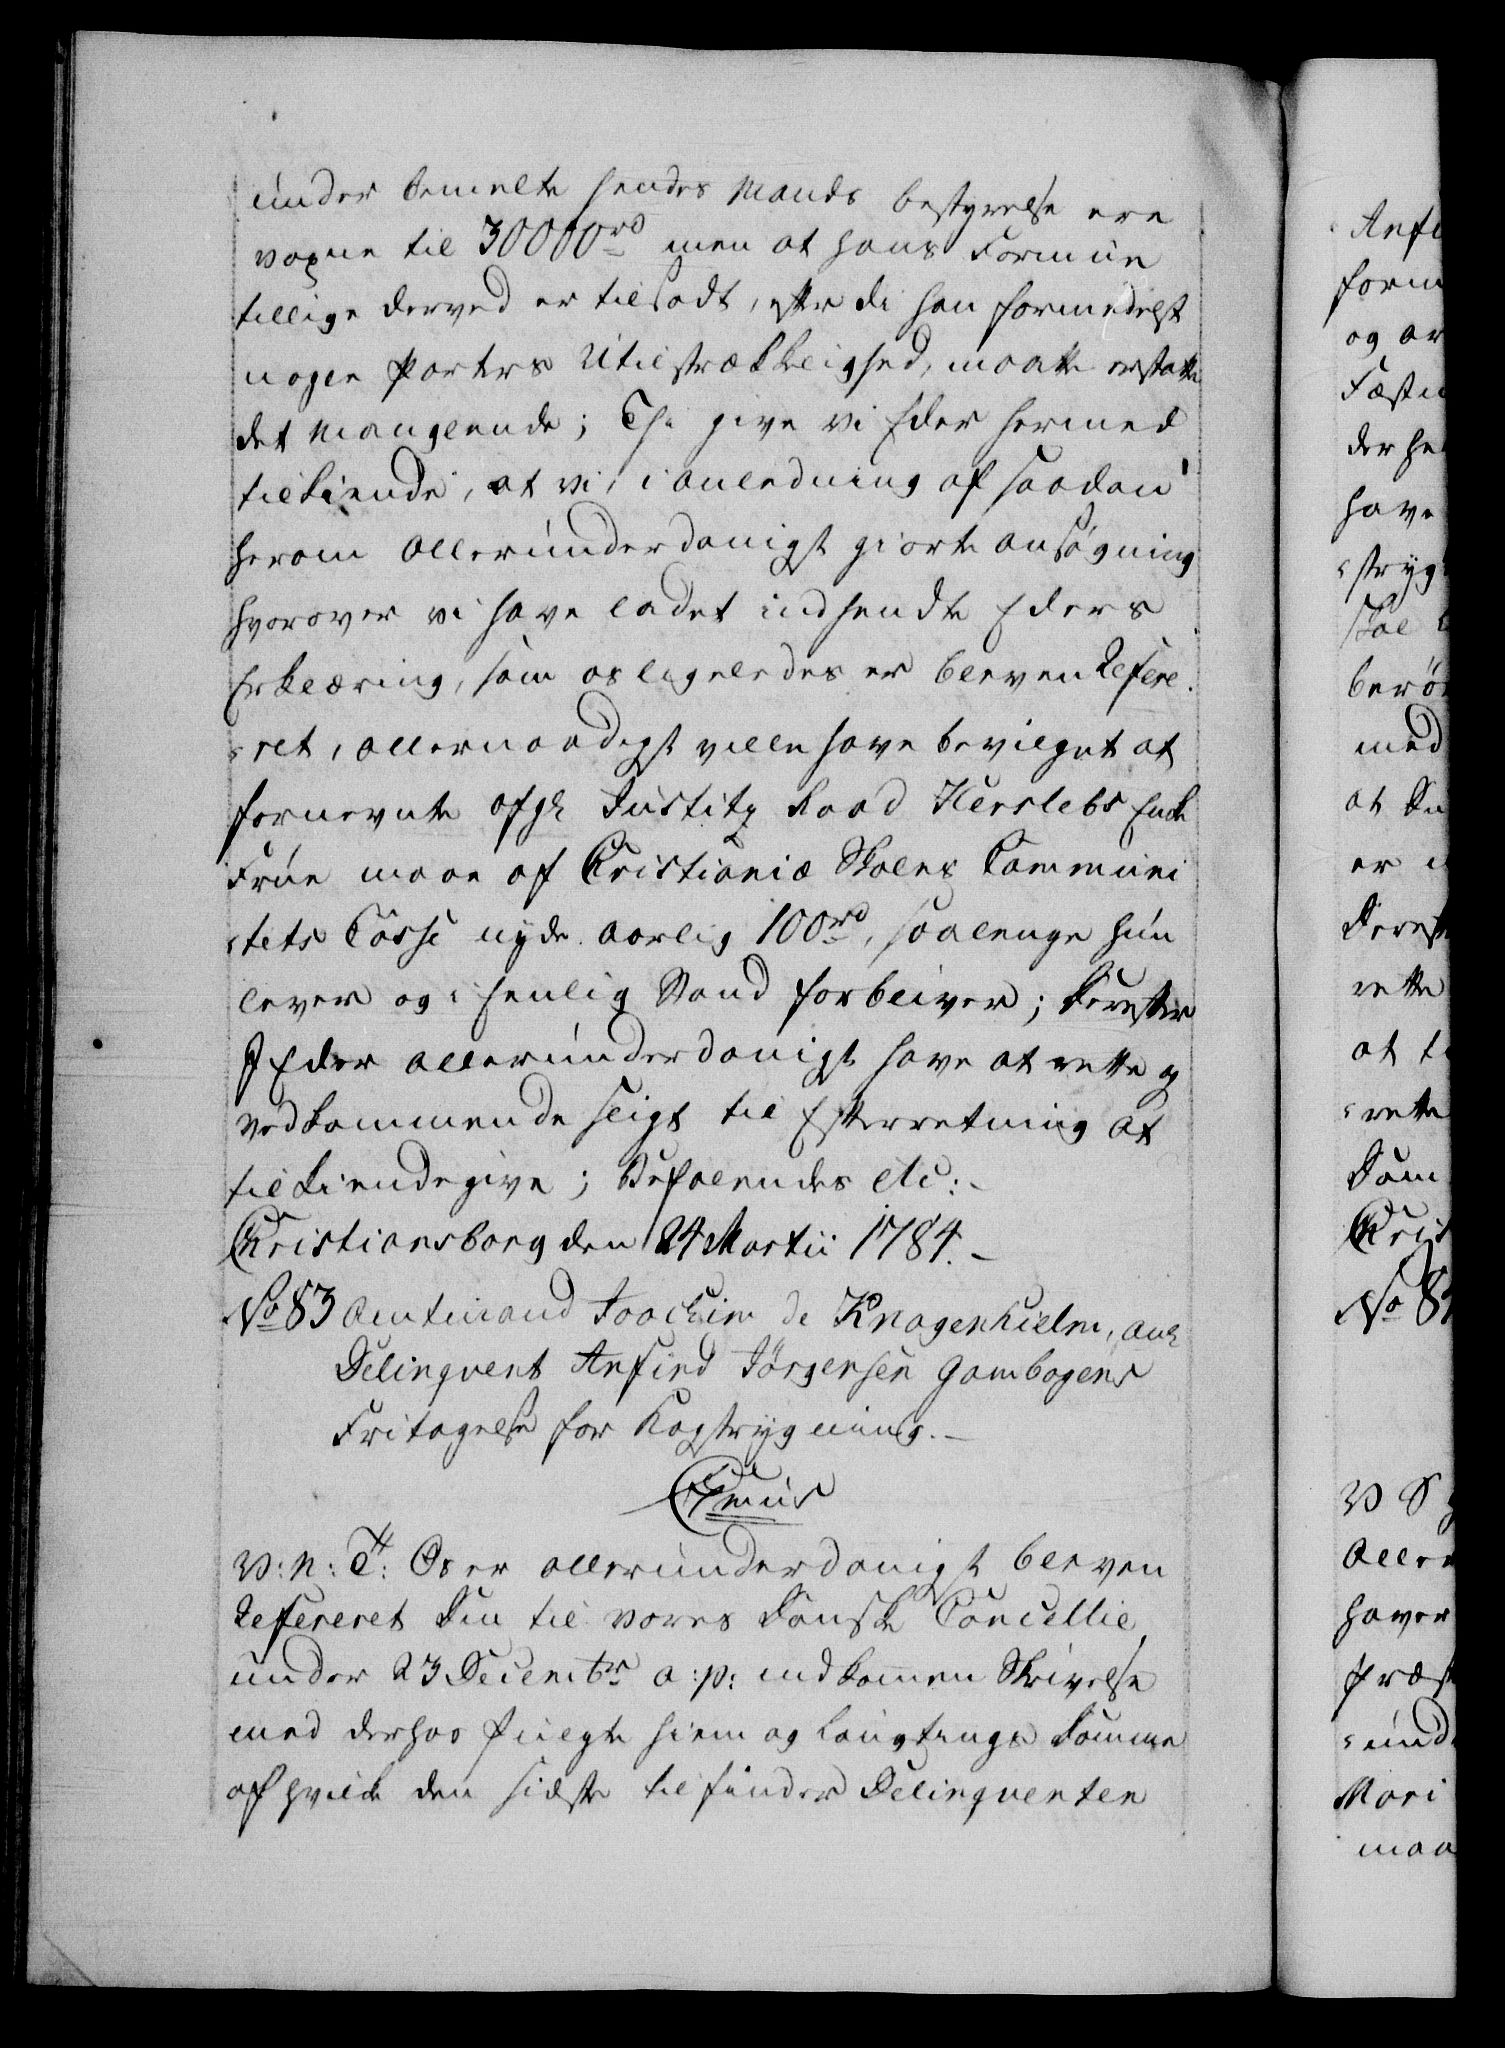 under bemelte hendes Mands bestyrelse ere
voxne til 30000rd men at hans Formue
tillige derved er tilsadt, efterdi han formedelst
nogen Parters Utilstrækkelighed, maatte erstatte
det Manglende; Thi give vi Eder hermed
tilkiende, at vi, i anledning af saadan
herom allerunderdanigst giorte ansøgning
hvorover vi have ladet indhendte Eders
Erklæring, som os ligeledes er bleven Refere¬
¬ret, allernaadigst ville have bevilget at
fornevnte afgl Justitz Raad Herslebs Enke
Frue maae af Christianiæ Skoles Communi
¬tets Casse nyde aarlig 100rd, saalenge hun
lever og i Enlig Stand forbliver; Derefter
I Eder allerunderdanigst have at rette og
vedkommende sligt til Efterretning at
tilkiendegive; Befalendes etc:
Christiansborg den 24 Martii 1784.
No 83 Amtmand Joachim de Knagenhielm, ang
Delinqvent Anfind Jørgensen Gambogens
Fritagelse for Kagstrygning.
V: N: T: Os er allerunderdanigst bleven
Refereret Din til vores Danske Cancellie
under 23 Decembr a: p: indkomen Skrivelse
med derhos fulgte Hiem og Laugtings Domme
af hvilke den sidste tilfinder Delinqventen
Anfi
form
og ar
Fæstn
der he
have
¬stryg
skal
berø
med
at Du
er
Dereft
rette
at ti
¬rette
Dom
Chris
No 8
V S
Aller
haver
Præst
¬und
Mari
maa